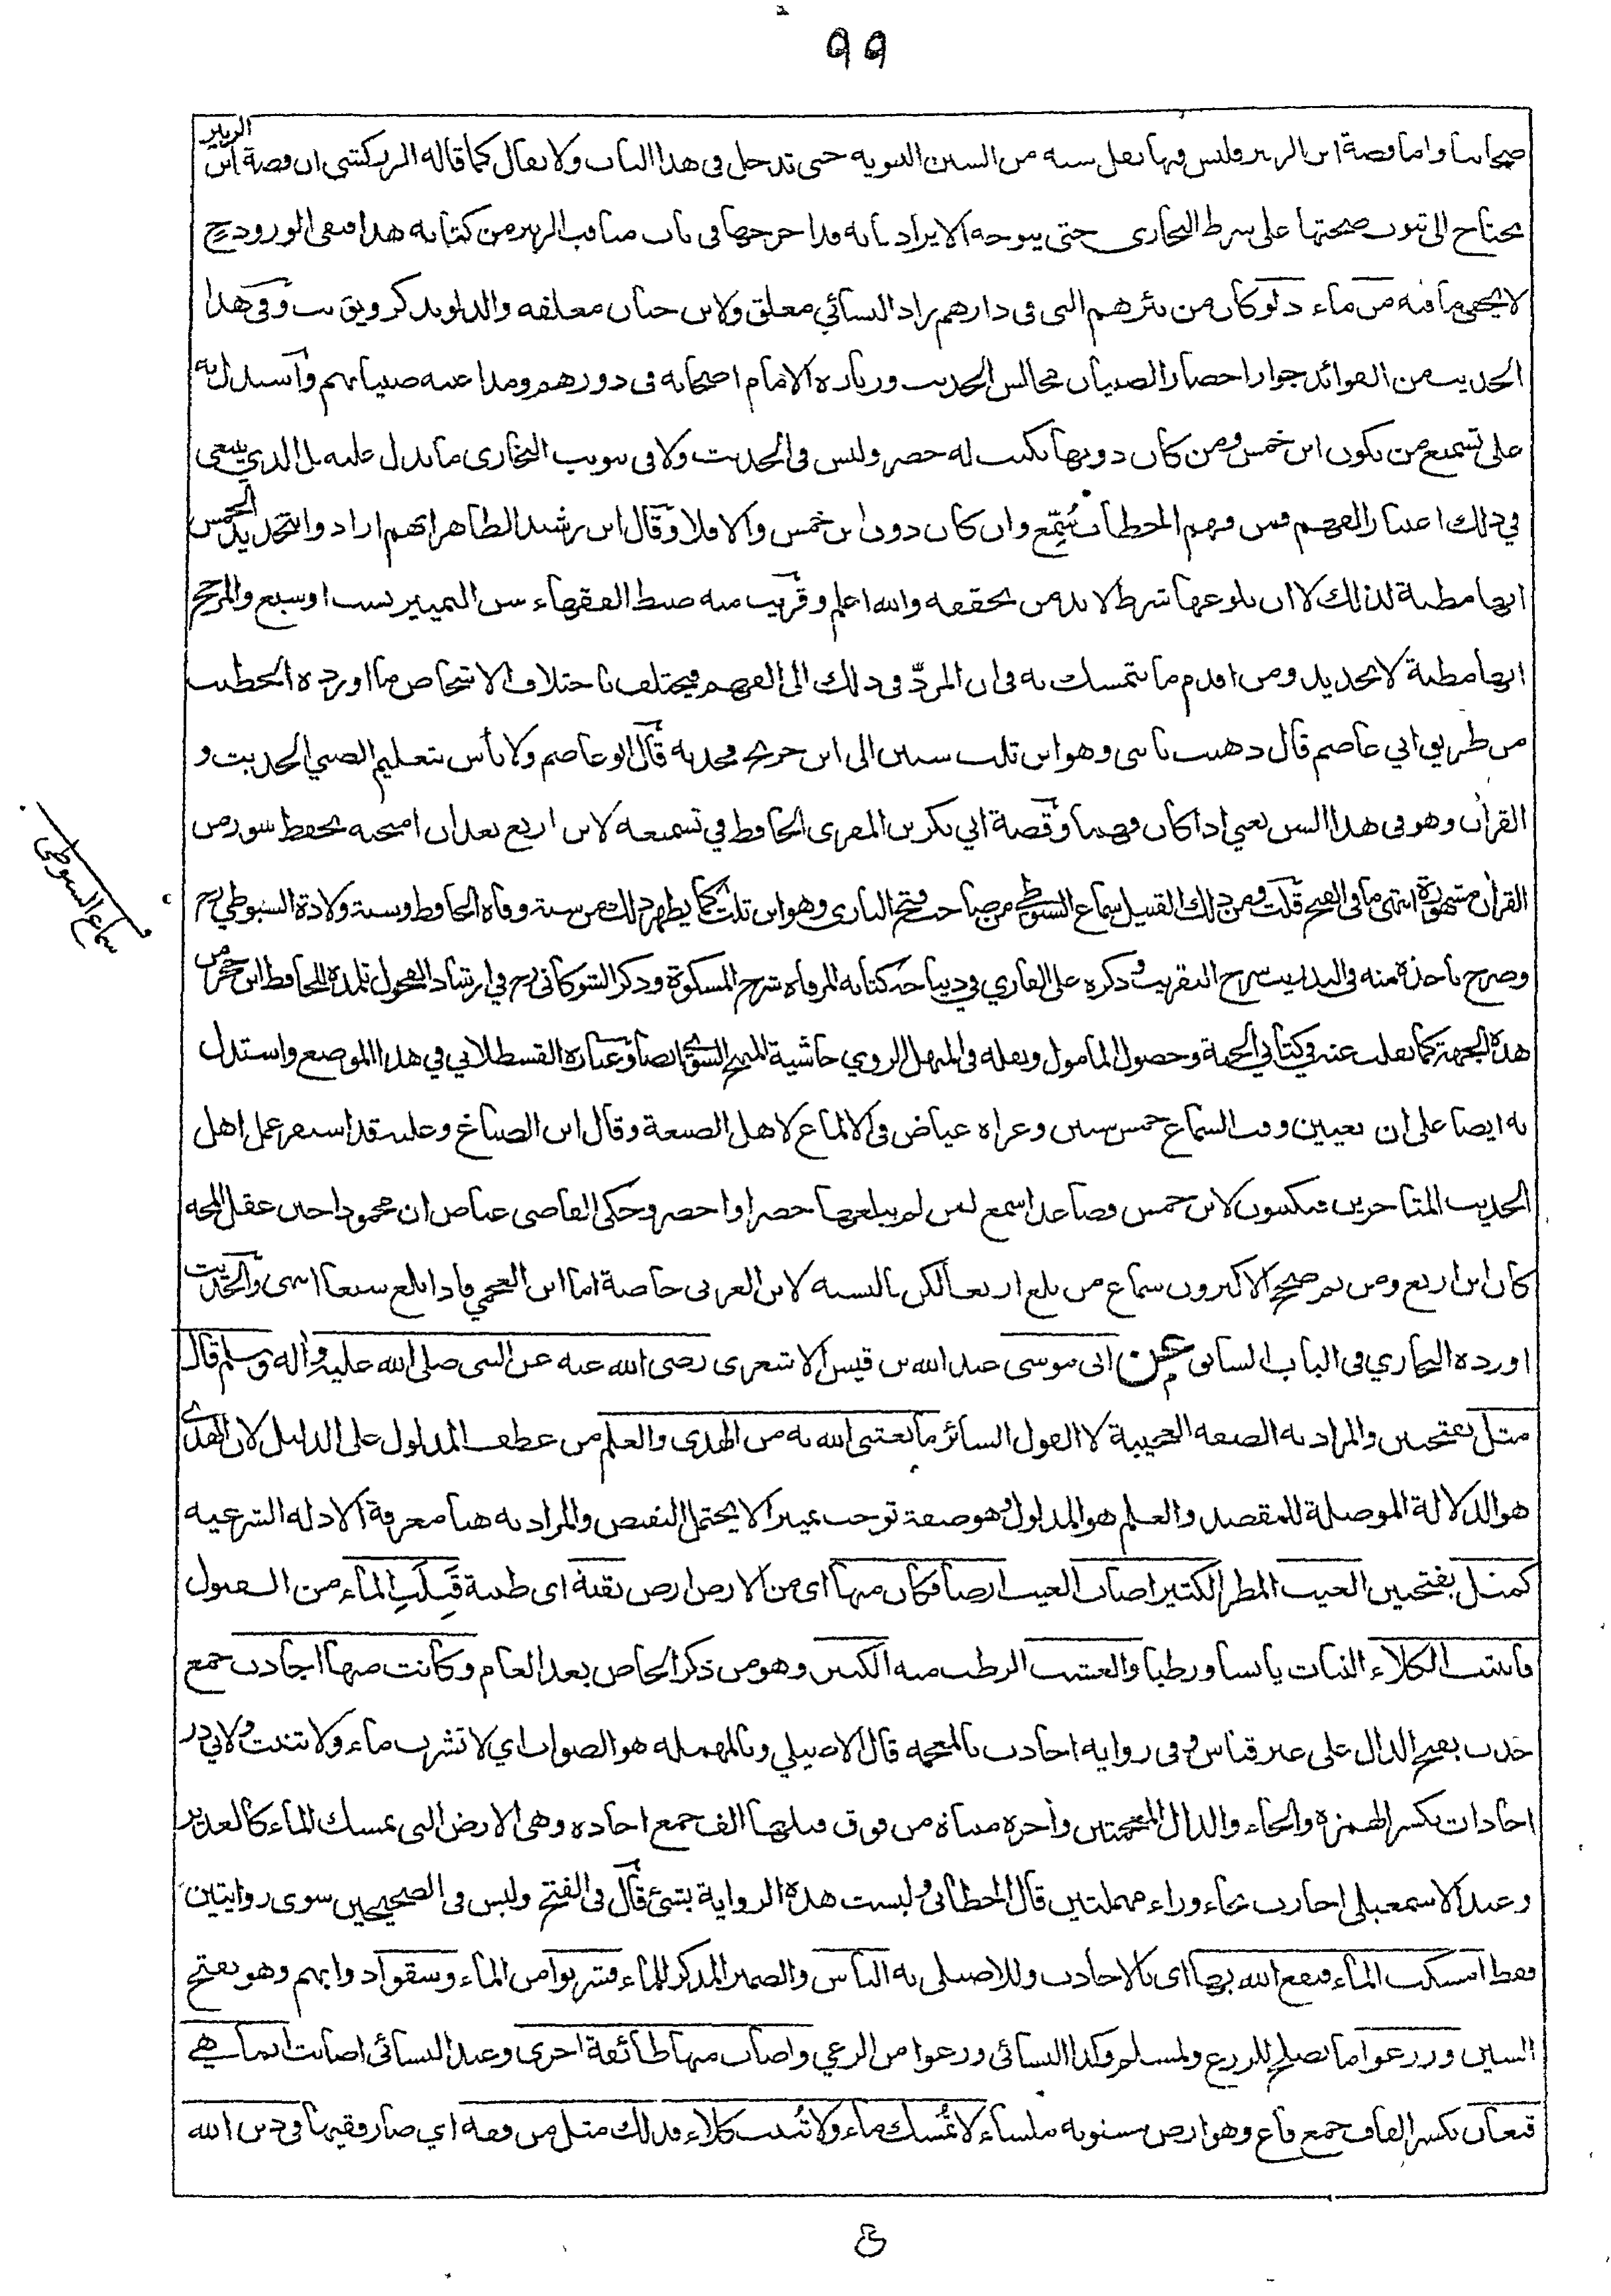 ٩٩
صحابيا واما قصة ابن الزبير فليس فيها نقل سنة من السنن النبوية حتى تدخل فى هذا الباب ولا يقال كما قاله الزركشى ان قصة ابن الزبير
يحتاج الى ثبوت صحتها على شرط البخارى حتى يتوجه الايراد بانه قد اخرجها فى باب مناقب الزبير من كتابه هذا فنفى الورود ح
لا يخفى ما فيه من ماء دلو كان من بئرهم التى فى دارهم زاد النسائي معلق ولابن حبان معلقة والدلو يذكر ويؤنث وفى هذا
الحديث من الفوائد جواز احضار الصبيان مجالس الحديث وزيارة الامام اصحابه فى دورهم ومداعبة صبيانهم وآستدل به
على تسميع من يكون ابن خمس ومن كان دونها يكتب له حضر وليس فى الحديث ولا فى تبويب البخارى ما يدل عليه بل الذي ينبغى
في ذلك اعتبار الفهم فمن فهم الخطاب سُمّع وان كان دون ابن خمس والا فلا وقال ابن رشيد الظاهر انهم ارادوا بتحديد الخمس
انها مظنة لذلك لا ان بلوغها شرط لا بد من تحققه والله اعلم وقريب منه ضبط الفقهاء سن التمييز بست او سبع والمرجح
انها مظنة لا تحديد ومن اقدم ما يتمسك به فى ان المردّ فى ذلك الى الفهم فيختلف باختلاف الاشخاص ما اورده الخطيب
من طريق ابي عاصم قال ذهبت بابنى وهو ابن ثلث سنين الى ابن جريج فحدثه قال ابو عاصم ولا بأس بتعليم الصبي الحديث و
القرأن وهو فى هذا السن يعني اذا كان فهيما وقصة ابي بكر بن المقرى الحافظ في تسميعه لابن اربع بعد ان امتحنه بحفظ سور من
القرأن مشهورة انتهى ما فى الفتح قلت ومن ذلك القبيل سماع السيوطي من صاحب فتح البارى وهو ابن ثلث كما يظهر ذلك من سنة وفاة الحافظ وسنة ولادة السيوطي رح
سماع السيوطى
وصرح باخذه منه فى التدريب شرح التقريب وذكره على القاري في ديباجة كتابه المرقاة شرح المشكوة وذكر الشوكانى رح في ارشاد الفحول تلمذه للحافظ ابن حجر من
هذه الجهة كما نقلت عنه في كتابي الجنة وحصول المامول ونقله فى المنهل الروي حاشية المنهج السوي ايضا وعبارة القسطلاني في هذا الموضع واستدل
به ايضا على ان تعيين وقت السماع خمس سنين وعزاه عياض فى الالماع لاهل الصنعة وقال ابن الصلاح وعليه قد استقر عمل اهل
الحديث المتاخرين فيكتبون لابن خمس فصاعدا سمع لمن لم يبلغها حضر او احضر وحكى القاضى عياض ان محمودا حين عقل المجة
كان ابن اربع ومن ثم صحح الاكثرون سماع من بلغ اربعا لكن بالنسبة لابن العربى خاصة اما ابن العجمي فاذا بلغ سبعا انتهى والحديث
اورده البخاري فى الباب السابق عن ابى موسى عبد الله بن قيس الاشعرى رضى الله عنه عن النبى صلى الله عليه وآله وسلم قال
مثل بفتحتين والمراد به الصفة العجيبة لا القول السائر ما بعثنى الله به من الهدى والعلم من عطف المدلول على الدليل لان الهدى
هو الدلالة الموصلة للمقصد والعلم هو المدلول وهو صفة توجب تمييزا لا يحتمل النقيض والمراد به هنا معرفة الادلة الشرعية
كمثل بفتحتين الغيث المطر الكثير اصاب الغيث ارضا فكان منها اى من الارض ارض نقية اى طيبة قَبِلَتِ الماء من القبول
فانبتت الكلاء النبات يابسا ورطبا والعشب الرطب منه الكثير وهو من ذكر الخاص بعد العام وكانت منها اجادب جمع
جدب بفتح الدال على غير قياس وفى رواية اجاذب بالمعجمة قال الاصيلي وبالمهملة هو الصواب اي لا تشرب ماء ولا تنبت ولابي ذر
اخاذات بكسر الهمزة والخاء والذال المعجمتين وأخره مثناة من فوق قبلها الف جمع اخاذة وهى الارض التى تمسك الماء كالغدير
وعند الاسمعيلى احارب بحاء وراء مهملتين قال الخطابى وليست هذه الرواية بشئ قال فى الفتح وليس فى الصحيحين سوى روايتين
فقط امسكت الماء فنفع الله بها اى بالاجادب وللاصيلى به الناس والضمير المذكر للماء فشربوا من الماء وسقوا دوابهم وهو بفتح
السين وزرعوا ما يصلح للزرع ولمسلم وكذا النسائى ورعوا من الرعي واصاب منها طائفة اخرى وعند النسائى اصابت انما هي
قيعان بكسر القاف جمع قاع وهو ارض مستوية ملساء لا تُمسك ماء ولا تُنبت كلاء فذلك مثل من فقه اي صار فقيها في دين الله